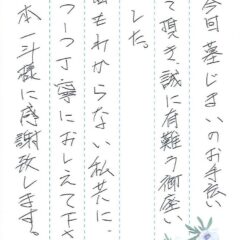 今回墓じまいのお手伝い
て頂き、誠に有難う御座い
した。
もわからない私共に、
つ一つ丁寧におしえて下さ
本一斗様に感謝致します。